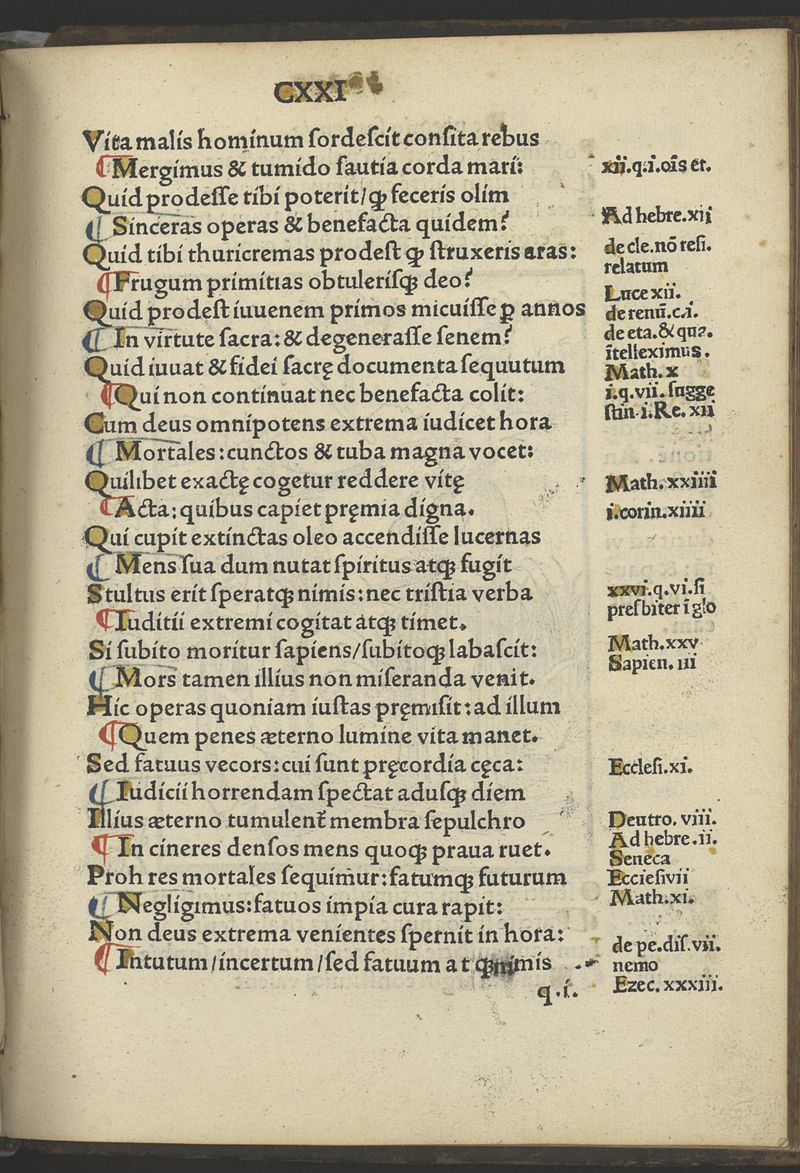 CXXI
Vita malis hominum ſordeſcit conſita rebus
¶Mergimus & tumido ſautia corda mari:
Quid prodeſſe tibi poterit/ꝙ feceris olim
¶ Sinceras operas & benefacta quidem?
Quid tibi thuricremas prodeſt ꝙ ſtruxeris aras:
¶Frugum primitias obtuleriſꝙ deo?
Quid prodeſt iuuenem primos micuiſſe ꝑ annos
¶ In virtute ſacra: & degeneraſſe ſenem?
Quid iuuat & fidei ſacrę documenta ſequutum
¶Qui non continuat nec benefacta colit:
Cum deus omnipotens extrema iudicet hora
¶ Mortales: cunctos & tuba magna vocet:
Quilibet exactę cogetur reddere vitę
¶Acta: quibus capiet pręmia digna.
Qui cupit extinctas oleo accendiſſe lucernas
¶ Mens ſua dum nutat ſpiritus atqꝫ fugit
Stultus erit ſperatqꝫ nimis: nec triſtia verba
¶Iuditii extremi cogitat atqꝫ timet.
Si ſubito moritur ſapiens/ſubitoqꝫ labaſcit:
¶ Mors tamen illius non miſeranda venit.
Hic operas quoniam iuſtas pręmiſit: ad illum
¶Quem penes æterno lumine vita manet.
Sed fatuus vecors: cui ſunt pręcordia cęca:
¶ Iudicii horrendam ſpectat aduſqꝫ diem
Illius æterno tumulent᷑ membra ſepulchro
¶ In cineres denſos mens quoqꝫ praua ruet.
Proh res mortales ſequimur: fatumqꝫ futurum
¶ Negligimus: fatuos impia cura rapit:
Non deus extrema venientes ſpernit in hora:
¶ Intutum/incertum/ſed fatuum atqꝫ nimis
q.i.
xii.q.i.oīs et.
Ad hebre.xii
de cle.nō reſi.
relatum
Luce xii.
de renū.c.i.
de eta.& qua.
ītelleximus.
Math.x
i.q.vii.ſugge
ſtū.i.Re.xii
Math.xxiiii
i.corin.xiiii
xxvi.q.vi.ſi
preſbiter ī glo
Math.xxv
Sapien.iii
Eccleſi.xi.
Deutro.viii.
Ad hebre.ii.
Seneca
Eccleſi vii
Math.xi.
de pe.diſ.vii.
nemo
Ezec.xxxiii.